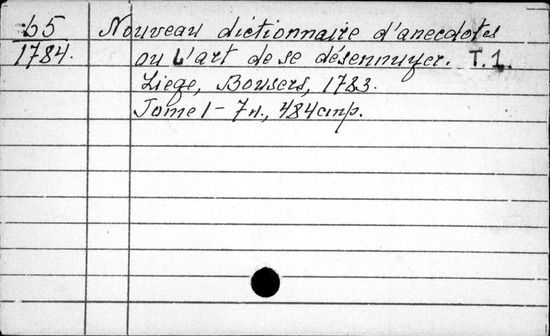 65
1784.
Nouveau dictionnaire d'anecdotes
ou L'art de se désennuyer. T. 1.
Liege, Bousers, 1783.
Tome 1 – 7 н., 484 стр.